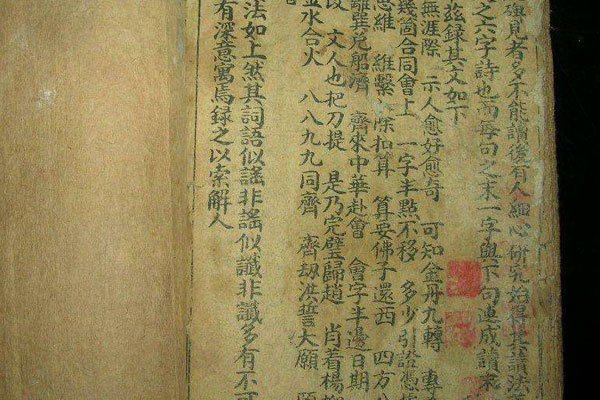 碑見者多不能讀後有人細心研究始得其讀法
之六字詩也而每句之末一字與下句連成讀來
茲錄其文如下
無涯際 示人愈好愈奇 可知金丹九轉
幾箇合同會上 一字半點不移 多少引證憑
思維 維繫 除扣算 算要佛子還西 四方
離巽兌船濟 齊來中華赴會 會字半邊日期
文人也把刀提 是乃完璧歸趙 肖着楊柳
水合火 八八九九同齊 齊劫洪誓大願 願
法如上然其詞語似謠非謠似讖非讖多有不可
有深意寓焉錄之以索解人